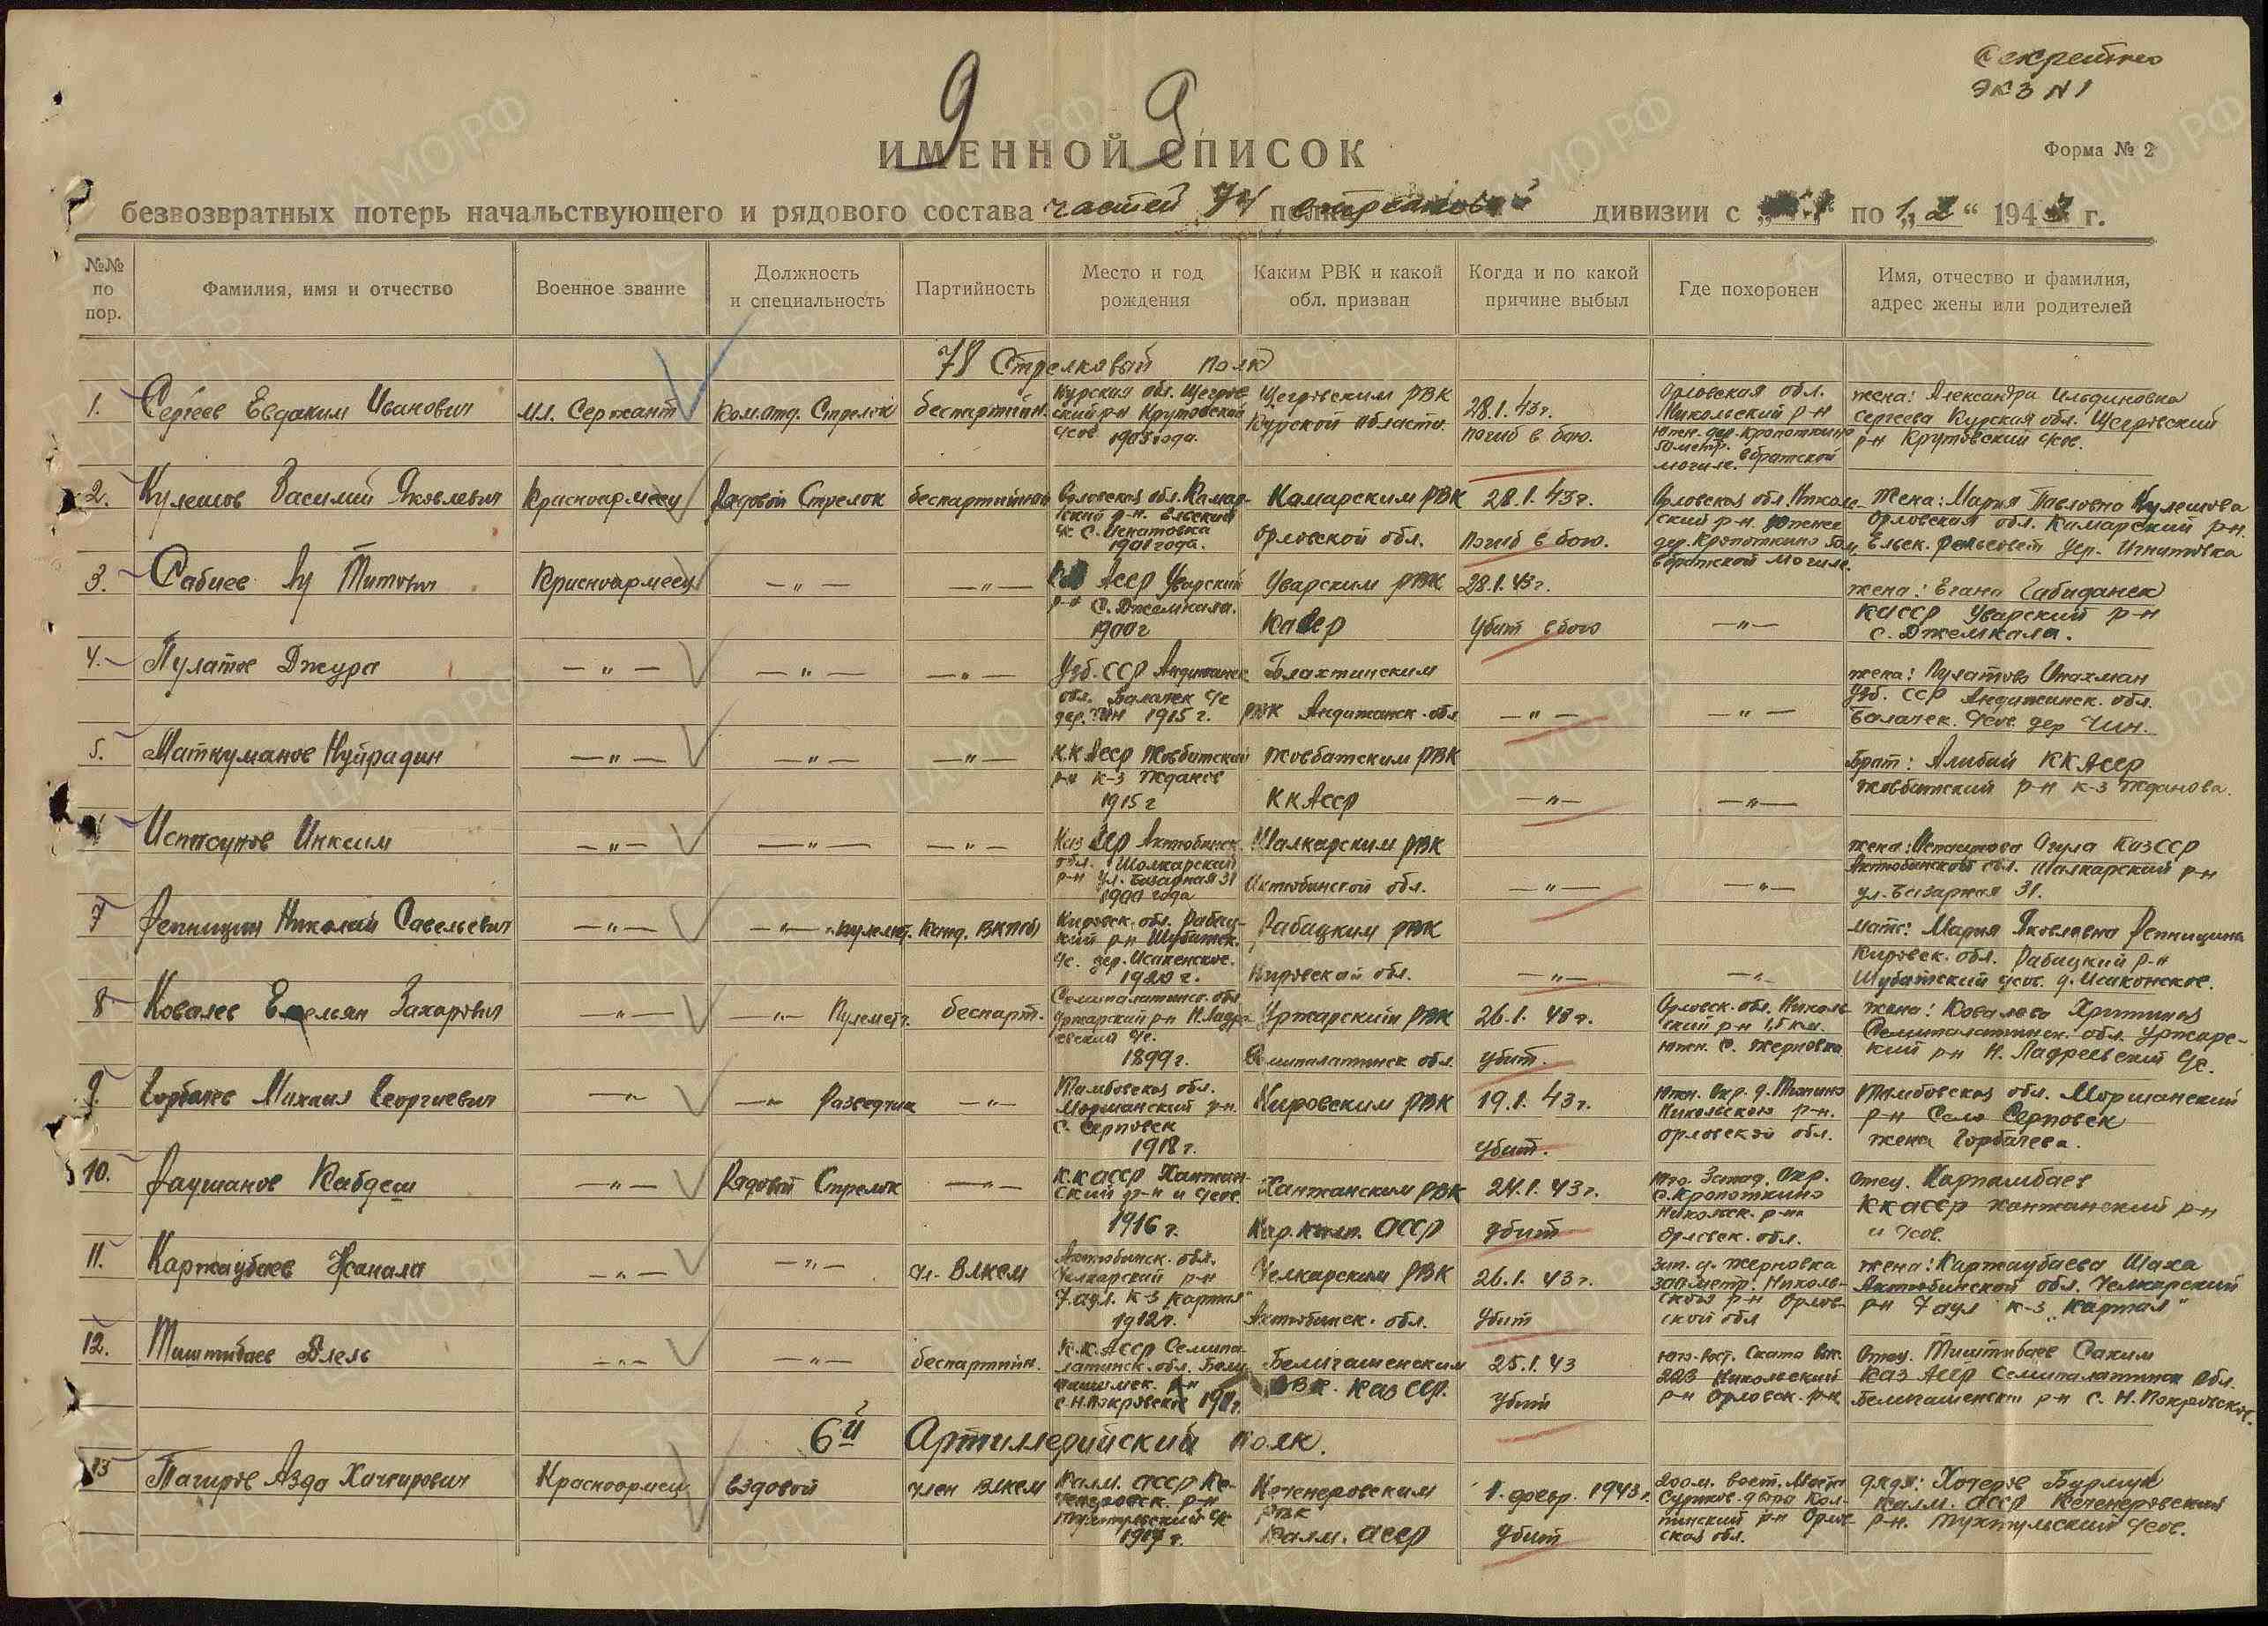 Секретно
экз N 1
9 9
ИМЕННОЙ СПИСОК
Форма № 2
безвозвратных потерь начальствующего и рядового состава частей 74 стрелковой дивизии с по „1.2“ 1943 г.
№№ по пор.
Фамилия, имя и отчество
Военное звание
Должность и специальность
Партийность
Место и год рождения
Каким РВК и какой обл. призван
Когда и по какой причине выбыл
Где похоронен
Имя, отчество и фамилия, адрес жены или родителей
78 Стрелковый полк
1. Сергеев Евдаким Иванович
мл. Сержант
Ком. отд. Стрелок
беспартийн.
Курская обл. Щегров-
ский р-н Крутовский
с/сов. 1908 года.
Щегровским РВК
Курской области.
28.1.43г.
погиб в бою.
Орловская обл.
Никольский р-н
Южн. дер. Кропоткино
50 метр. в братской
могиле.
жена: Александра
Сергеева Курская обл. Щегровский
р-н Крутовский с/сов.
2. Кулешов Василий Яковлевич
Красноармеец
Рядовой Стрелок
беспартийный
Орловская обл. Камар-
ский р-н. Ельский
с/с. с. Игнатовка
1901 года.
Камарским РВК
Орловской обл.
28.1.43г.
Погиб в бою.
Орловская обл. Николь-
ский р-н. Южнее
дер. Кропоткино 50 м,
в братской могиле.
Жена: Мария Павловна Кулешова
Орловская обл. Камарский р-н.
Ельск. сельсовет дер. Игнатовка
3. Сабиев Титович
Красноармеец
— „ —
— „ —
АССР Уварский
р-н с. Джемкала.
1900 г
Уварским РВК
28.1.43г.
Убит в бою
— „ —
жена:
КАССР Уварский р-н
с. Джемкала.
4. Пулатов Джура
— „ —
— „ —
— „ —
Узб. ССР Андижанск
обл. Балачек с/с
дер. Чин 1915 г.
Блахтинским
РВК Андижанск. обл
— „ —
— „ —
жена: Пулатова Инахман
Узб. ССР Андижанск. обл.
Балачек. с/сов. дер Чин.
5. Маткуманов Нуйрадин
— „ —
— „ —
— „ —
К.К АССР Жовбатский
р-н к-з Жданов
1915 г
Жовбатским РВК
ККАССР
— „ —
— „ —
Брат: Алибай ККАССР
Жовбатский р-н к-з Жданова.
Испасунов Инксим
— „ —
— „ —
— „ —
Каз ССР Актюбинск
обл. Шолкарский
р-н ул. Базарная 31
1901 года
Шалкарским РВК
Актюбинской обл.
— „ —
— „ —
жена: КазССР
Актюбинской обл. Шалкарский р-н
ул. Базарная 31.
7 Репницин Николай Савельевич
— „ —
— „ — пулемет.
Канд. ВКП(б)
Кировск. обл. Рабиц-
кий р-н Шубатск.
с/с. дер. Исакенское.
1920 г.
Рабицким РВК
Кировской обл.
— „ —
— „ —
мать: Мария Яковлевна Репницина
Кировск. обл. Рабицкий р-н
Шубатский с/сов. д. Исаконское.
8 Ковалев Емельян Захарович
— „ —
— „ — Пулеметч.
беспарт.
Семипалатинск. обл
Уржарский р-н Н. Ладре-
евский с/с.
1899 г.
Уржарский РВК
Семипалатинск обл.
26.1.43г.
убит.
Орловск. обл. Николь-
ский р-н 1,5 км.
южн. с. Жерновка
жена: Ковалева Христиния
Семипалатинск. обл. Уржарс-
кий р-н Н. Ладреевский с/с.
9. Горбачев Михаил Георгиевич
— „ —
— „ — Разведчик
— „ —
Тамбовская обл.
Моршанский р-н.
с. Серповск
1918 г.
Кировским РВК
19.1.43г.
убит.
Южн. окр. д.
Никольского р-н.
Орловской обл.
Тамбовская обл. Моршанский
р-н Село Серповск
жена Горбачева.
10. Раушанов Кабдеш
— „ —
Рядовой Стрелок
— „ —
К.К АССР Ханжан-
ский р-н и с/сов.
1916 г.
Ханжанским РВК
Кар. калп. АССР
24.1.43г.
убит
Юго. Запад. окр.
с. Кропоткино
Никольск. р-на
Орловск. обл.
Отец. Карпамбаев
ККАССР Ханжанский р-н
и с/сов.
11. Каржаубаев Жанала
— „ —
— „ —
чл. ВЛКСМ
Актюбинск. обл.
Челкарский р-н
7 аул. к-з Картал"
1912 г.
Челкарским РВК
Актюбинск. обл.
26.1.43г.
Убит
зап. д. Жерновка
300 метр. Николь-
ского р-н Орлов-
ской обл
жена: Каржаубаева Шаха
Актюбинской обл. Челкарский
р-н 7 аул к-з „Картал"
12. Тиштибаев Длель
— „ —
— „ —
беспартийн.
К.К. АССР Семипа-
латинск. обл.
с. Н. Покровск
РВК. Каз ССР.
25.1.43
Убит
юго-вост. Ската выс.
223 Никольский
р-н Орловск. р-н
Отец. Тиштибаев Саким
Каз АССР Семипалатинск обл.
р-н с. Н. Покровское.
6й Артиллерийский полк.
13 Тагиров Азда Хачирович
Красноармеец
ездовой
член ВЛКСМ
Калм. АССР Ке-
ченеровск. р-н
Тухтульский с/с
Кеченеровским
РВК
Калм. АССР
1. февр. 1943г.
Убит
200 м. вост.
пинский р-н Орлов-
ская обл.
дядя: Хочеров Бурлук
Калм. АССР Кеченеровский
р-н. Тухтульский с/сов.